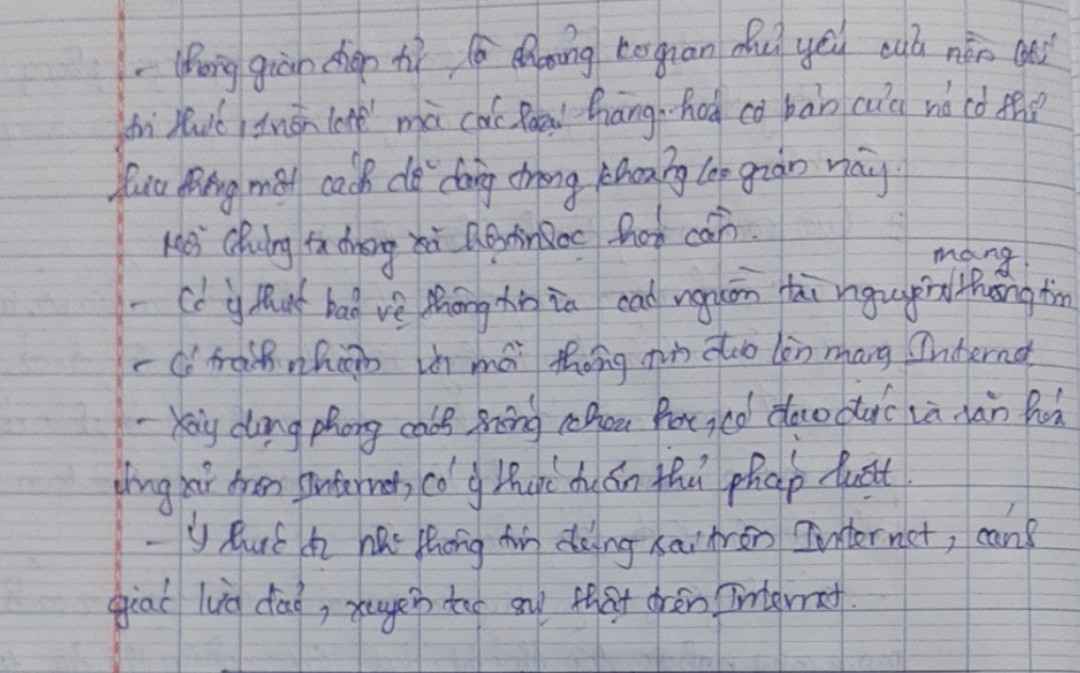 - không gian điện tử là khoảng ko gian chủ yếu của nền
tri thức, nền ktế mà các loại hàng hoá cơ bản của nó có thể
lưu thông một cách dễ dàng trong khoảng ko gian này.
Mỗi chúng ta trong xã hội tin học hoá cần.
mạng
- Có ý thức bảo vệ thông tin và các nguồn tài nguyên thông tin
- Có trách nhiệm với mỗi thông tin đưa lên mạng Internet
- Xây dựng phong cách sống khoa học, có đạo đức và văn hoá
ứng xử trên Internet, có ý thức tuân thủ pháp luật.
- Ý thức thông tin đúng sai trên Internet, cảnh
giác lừa đảo, xuyên tạc sự thật trên Internet.